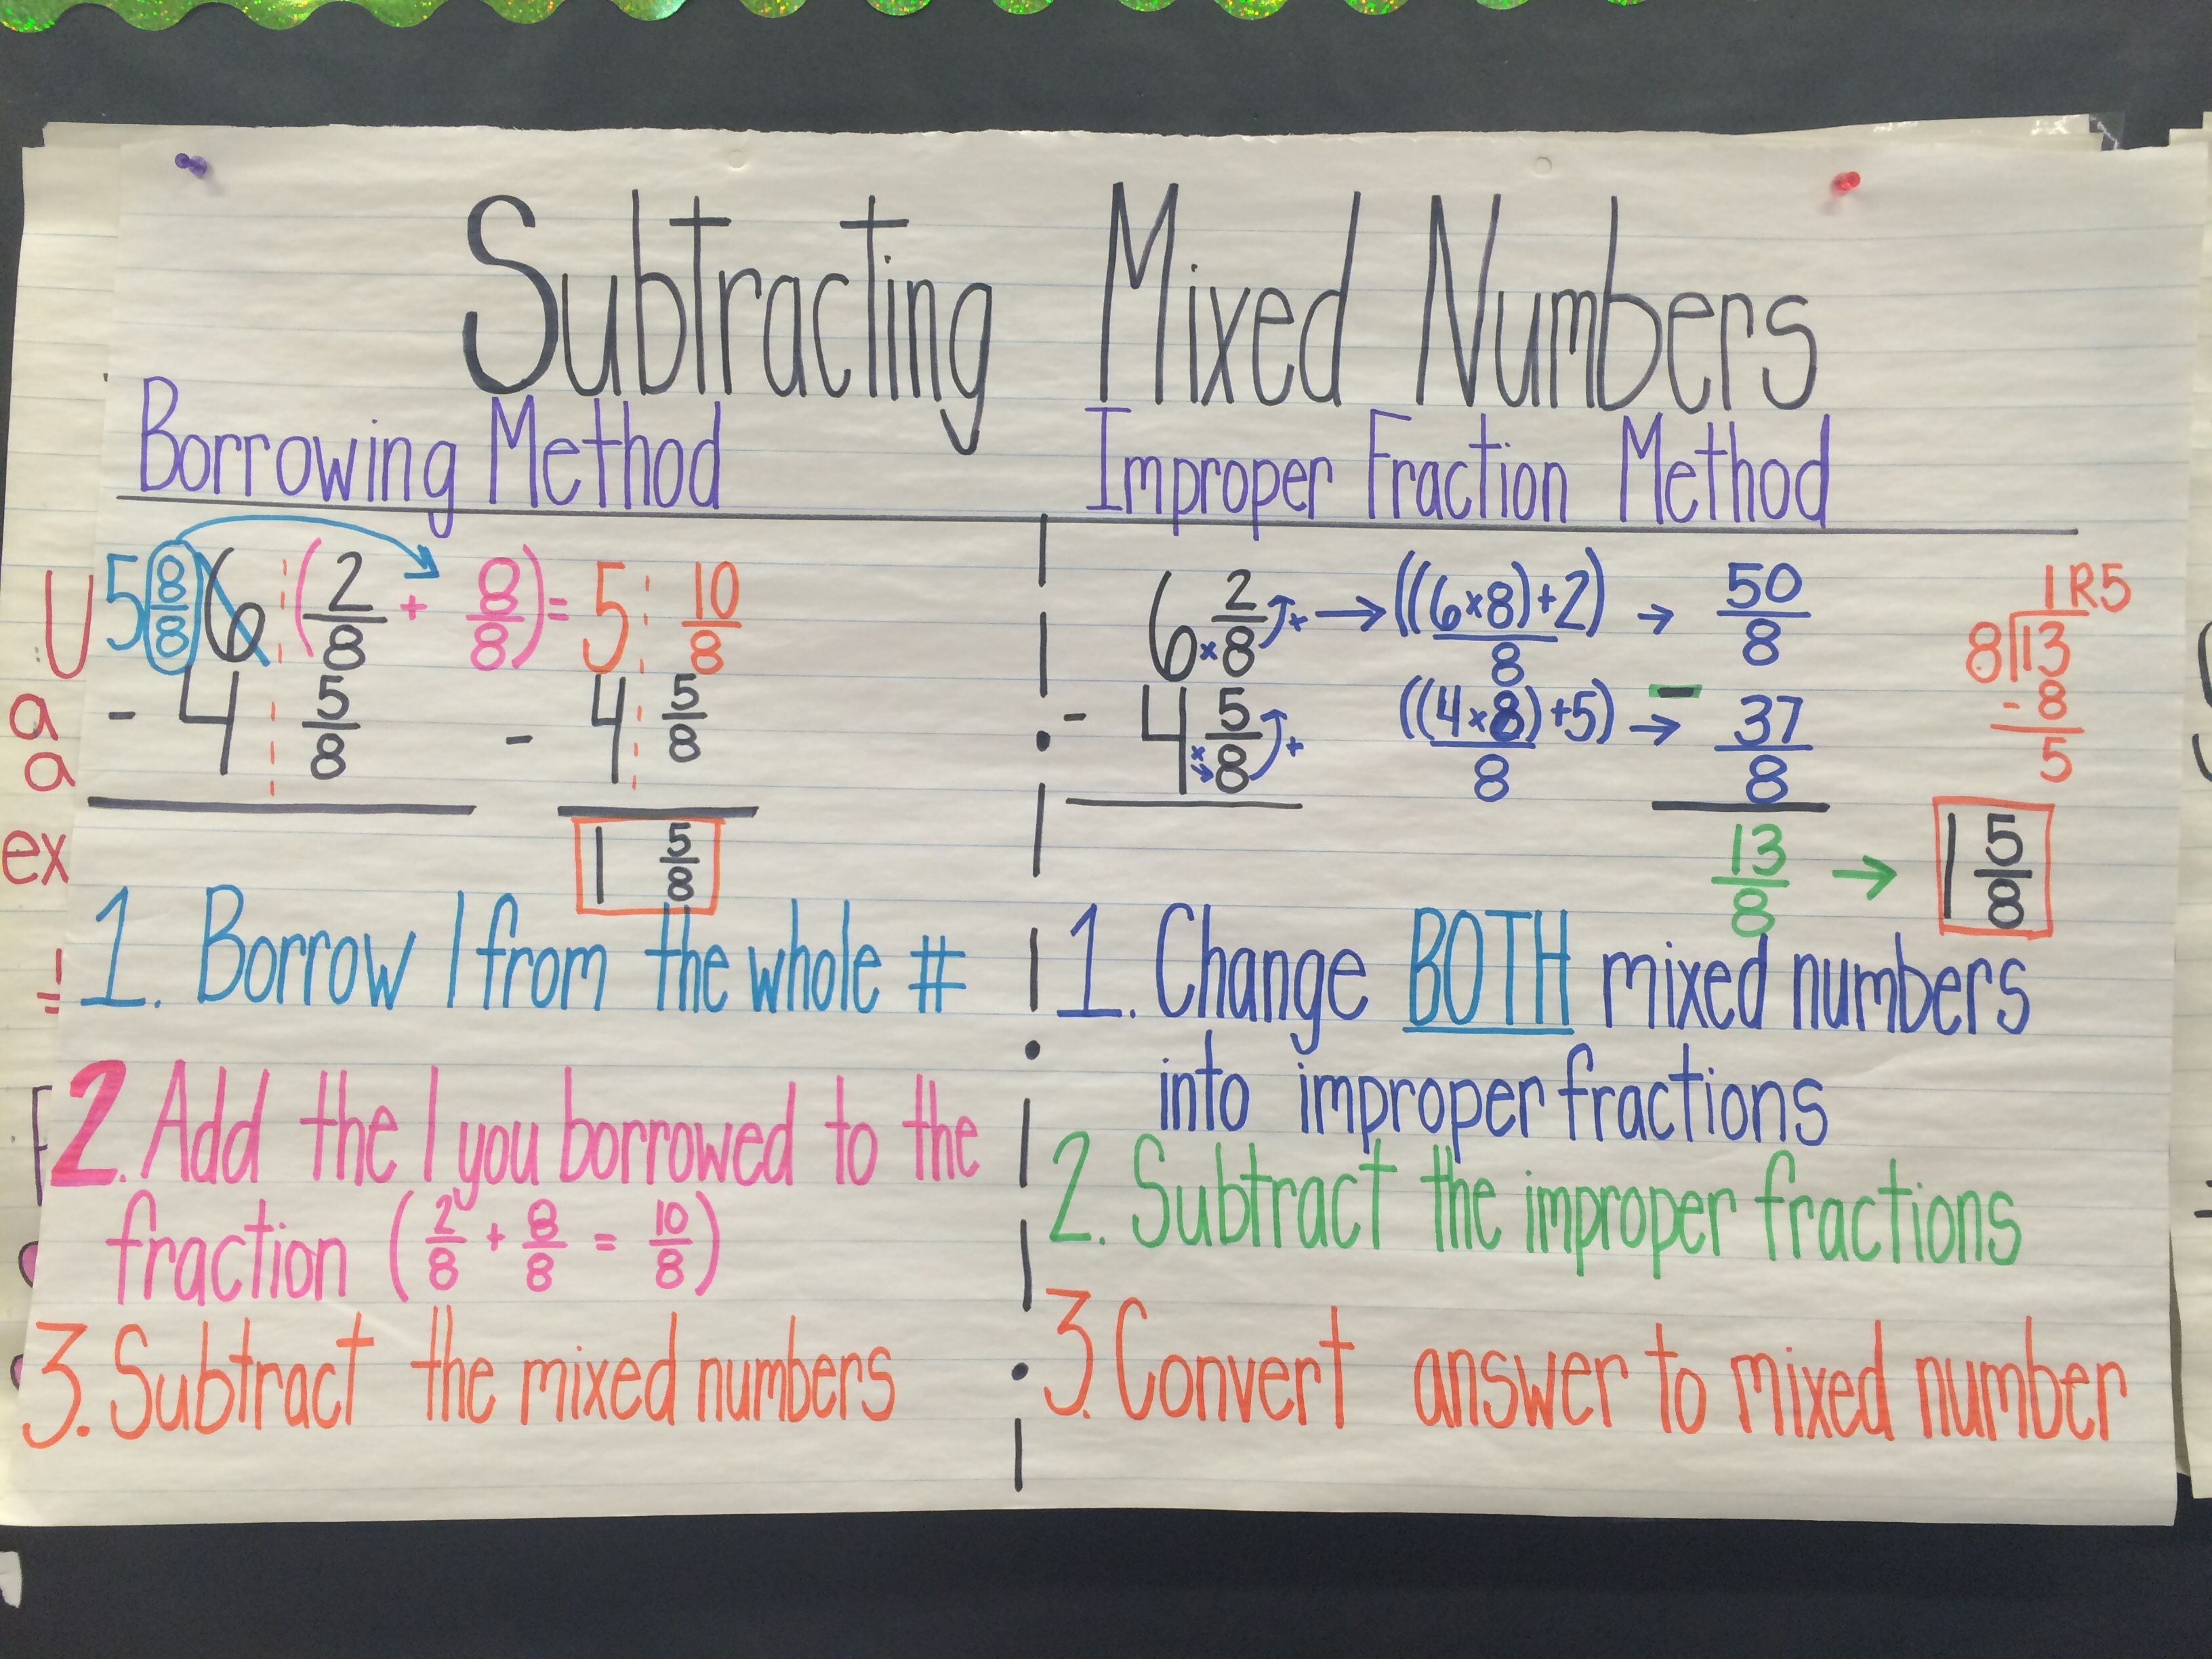 Subtracting Mixed Numbers
Borrowing Method
5 8/8 6 (2/8 + 8/8) = 5 10/8
- 4 5/8 - 4 5/8
1 5/8
1. Borrow 1 from the whole #
2. Add the 1 you borrowed to the
fraction (2/8 + 8/8 = 10/8)
3. Subtract the mixed numbers
Improper Fraction Method
6 × 2/8 + → ((6×8)+2)/8 → 50/8
- 4 × 5/8 + ((4×8)+5)/8 → - 37/8
13/8 → 1 5/8
1 R5
8 13
- 8
5
1. Change BOTH mixed numbers
into improper fractions
2. Subtract the improper fractions
3. Convert answer to mixed number
U
a
a
ex